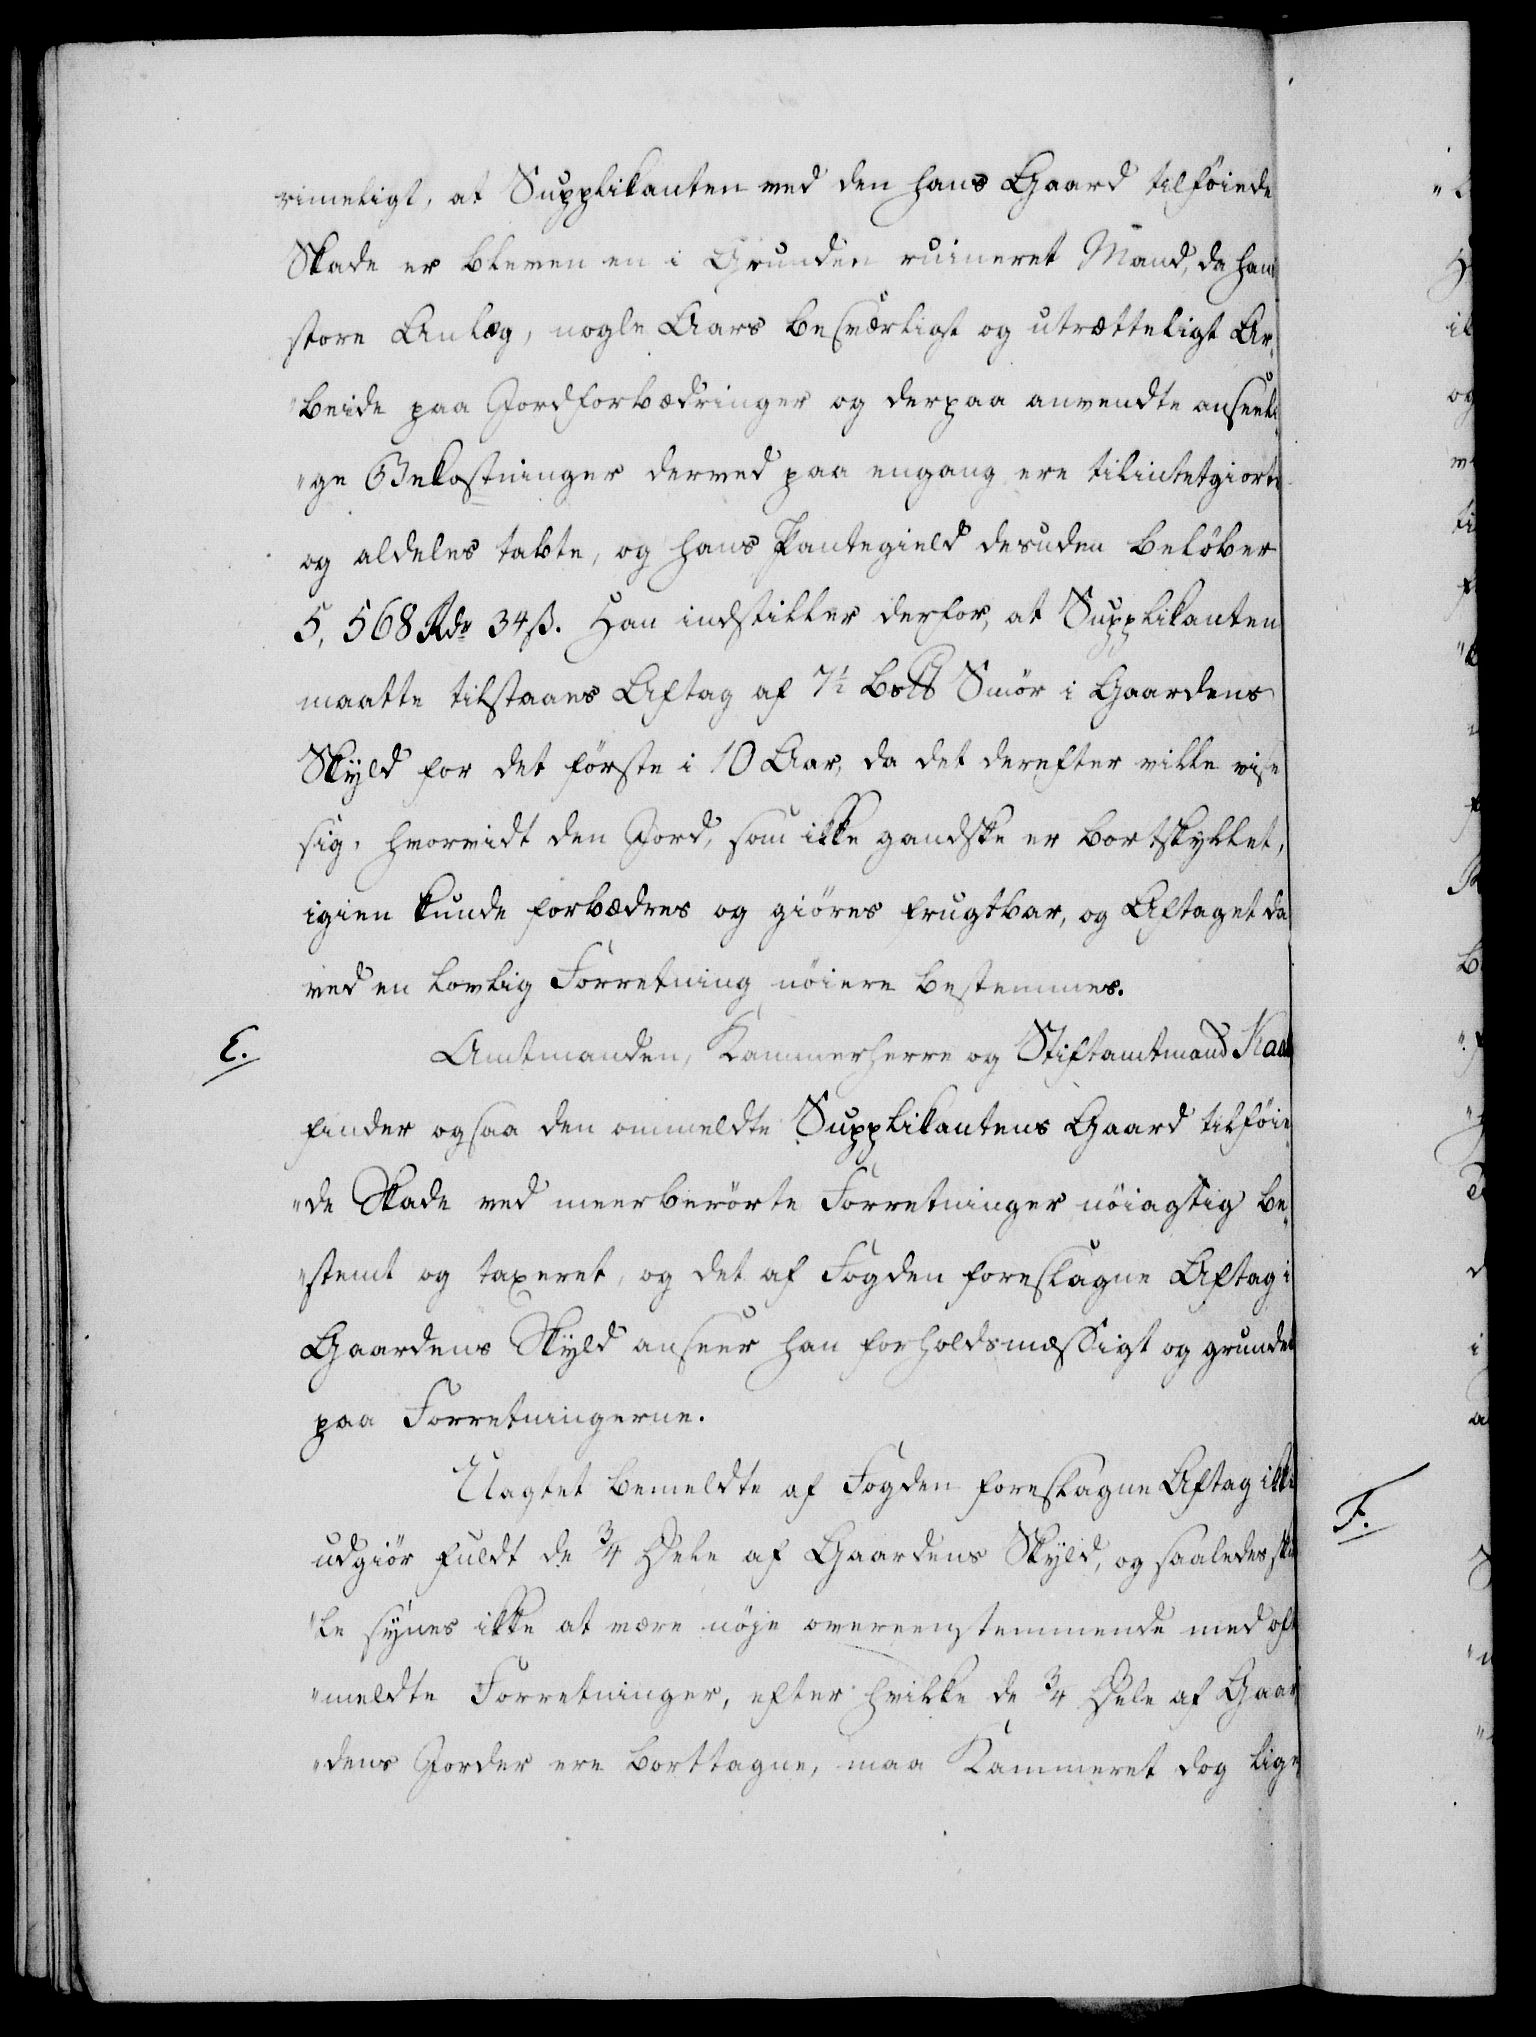 rimeligt, at Supplikanten ved den hans Gaard tilføiede
Skade er bleven en i Grunden ruineret Mand, da hans
store Anlæg, nogle Aars besværligt og utrætteligt Ar-
"beide paa Jordforbædringer og derpaa anvendte anseeli-
"ge Bekostninger derved paa engang ere tilintetgiorte
og aldeles tabte, og hans Pantegield desuden beløber
5,568 Rdr 34 ß. Han indstiller derfor, at Supplikanten
maatte tilstaaes Aftag af 7½ Bs℔ Smør i Gaardens
Skyld for det første i 10 Aar, da det derefter ville vise
sig, hvorvidt den Jord, som ikke gandske er bortskyllet,
igien kunde forbædres og giøres frugtbar, og Aftaget da
ved en lovlig Forretning nøiere bestemmes.
E. Amtmanden, Kammerherre og Stiftamtmand
finder ogsaa den ommeldte Supplikantens Gaard tilføie-
"de Skade ved meerberørte Forretninger nøiagtig be-
"stemt og taxeret, og det af Fogden foreslagne Aftag i
Gaardens Skyld anseer han forholdsmæssigt og grundet
paa Forretningerne.
Uagtet bemeldte af Fogden foreslagne Aftag ikke
F.
udgiør fuldt de ¾ Dele af Gaardens Skyld, og saaledes skul
"le synes ikke at være nøje overeenstemmende med oft
"meldte Forretninger, efter hvilke de ¾ Dele af Gaar
"dens Jorder ere borttagne, maa Kammeret dog lige